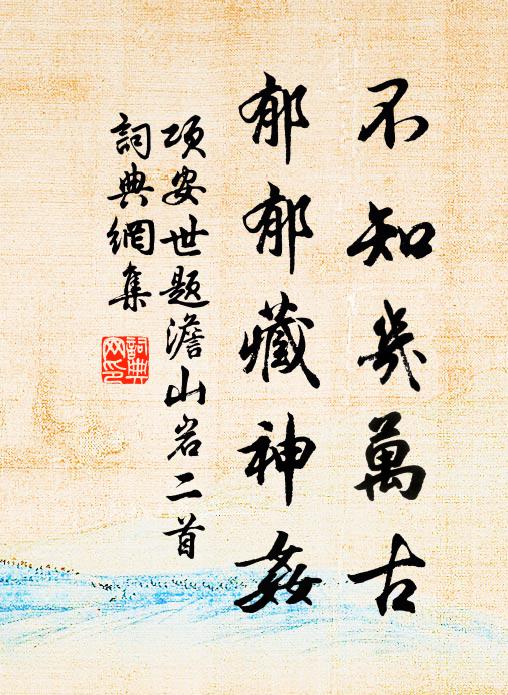 不知幾萬古
郁郁藏神姦
项安世题澹山岩二首
詞典網集
詞典
网印